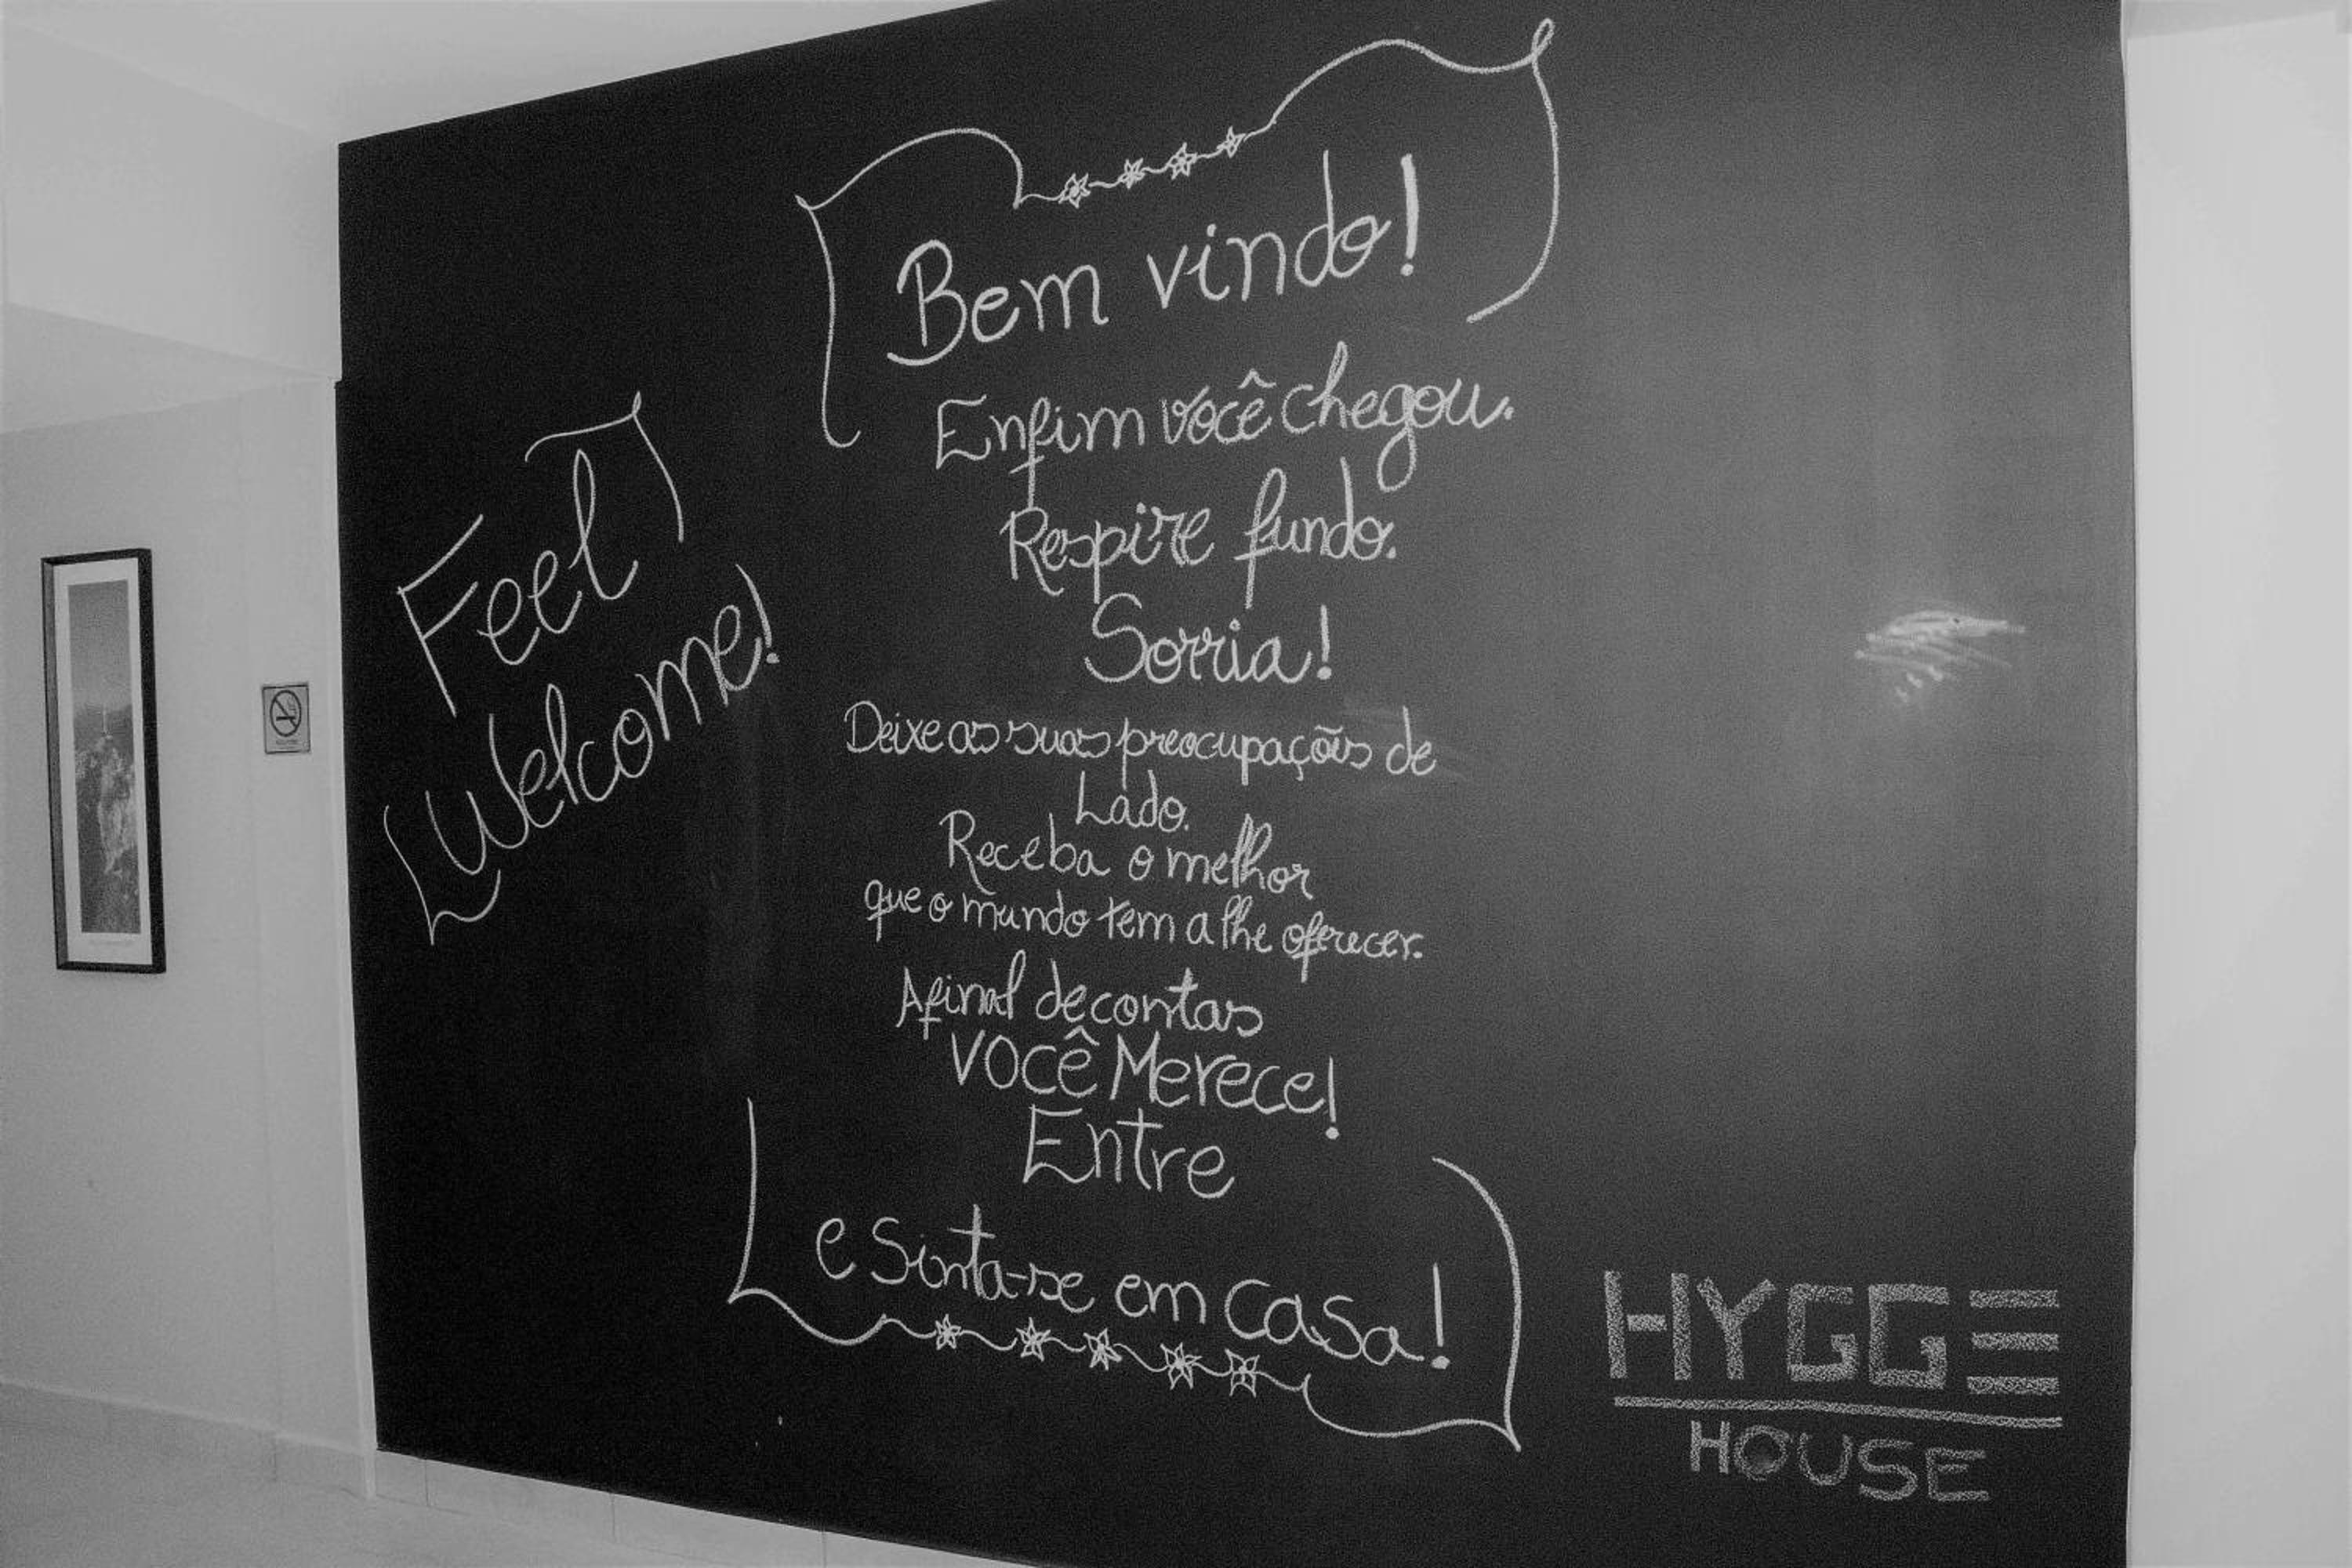 Bem vindo!
Enfim você chegou.
Respire fundo.
Sorria!
Deixe as suas preocupações de
Lado.
Receba o melhor
que o mundo tem a lhe oferecer.
Afinal de contas
VOCÊ Merece!
Entre
e Sinta-se em casa!
Feel
Welcome!
HYGGE
HOUSE